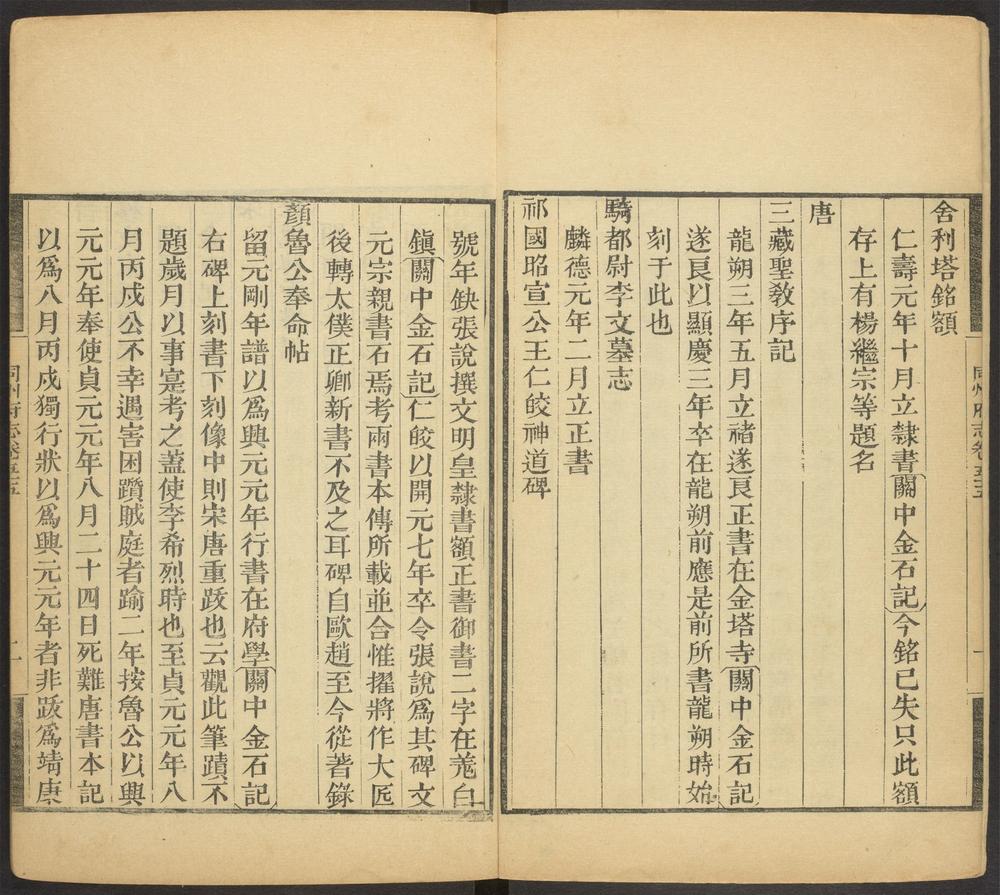 舍利塔銘額
仁壽元年十月立隸書關中金石記今銘已失只此額
存上有楊繼宗等題名
唐
三藏聖敎序記
龍朔三年五月立禇遂良正書在金塔寺關中金石記
遂良以顯慶三年卒在龍朔前應是前所書龍朔時始
刻于此也
騎都尉李文墓志
麟德元年二月立正書
祁國昭宣公王仁皎神道碑
號年缺張說撰文明皇隸書額正書御書二字在羗白
鎭關中金石記仁皎以開元七年卒令張說爲其碑文
元宗親書石焉考兩書本傳所載並合惟擢將作大匠
後轉太僕正卿新書不及之耳碑自歐趙至今從著錄
顏魯公奉命帖
留元剛年譜以爲興元元年行書在府學關中金石記
右碑上刻書下刻像中則宋唐重跋也云觀此筆蹟不
題歲月以事寔考之蓋使李希烈時也至貞元元年八
月丙戍公不幸遇害困躓賊庭者踰二年按魯公以興
元元年奉使貞元元年八月二十四日死難唐書本記
以爲八月丙戍獨行狀以爲興元元年者非跋爲靖康
同州府志卷
一
同州府志卷
二